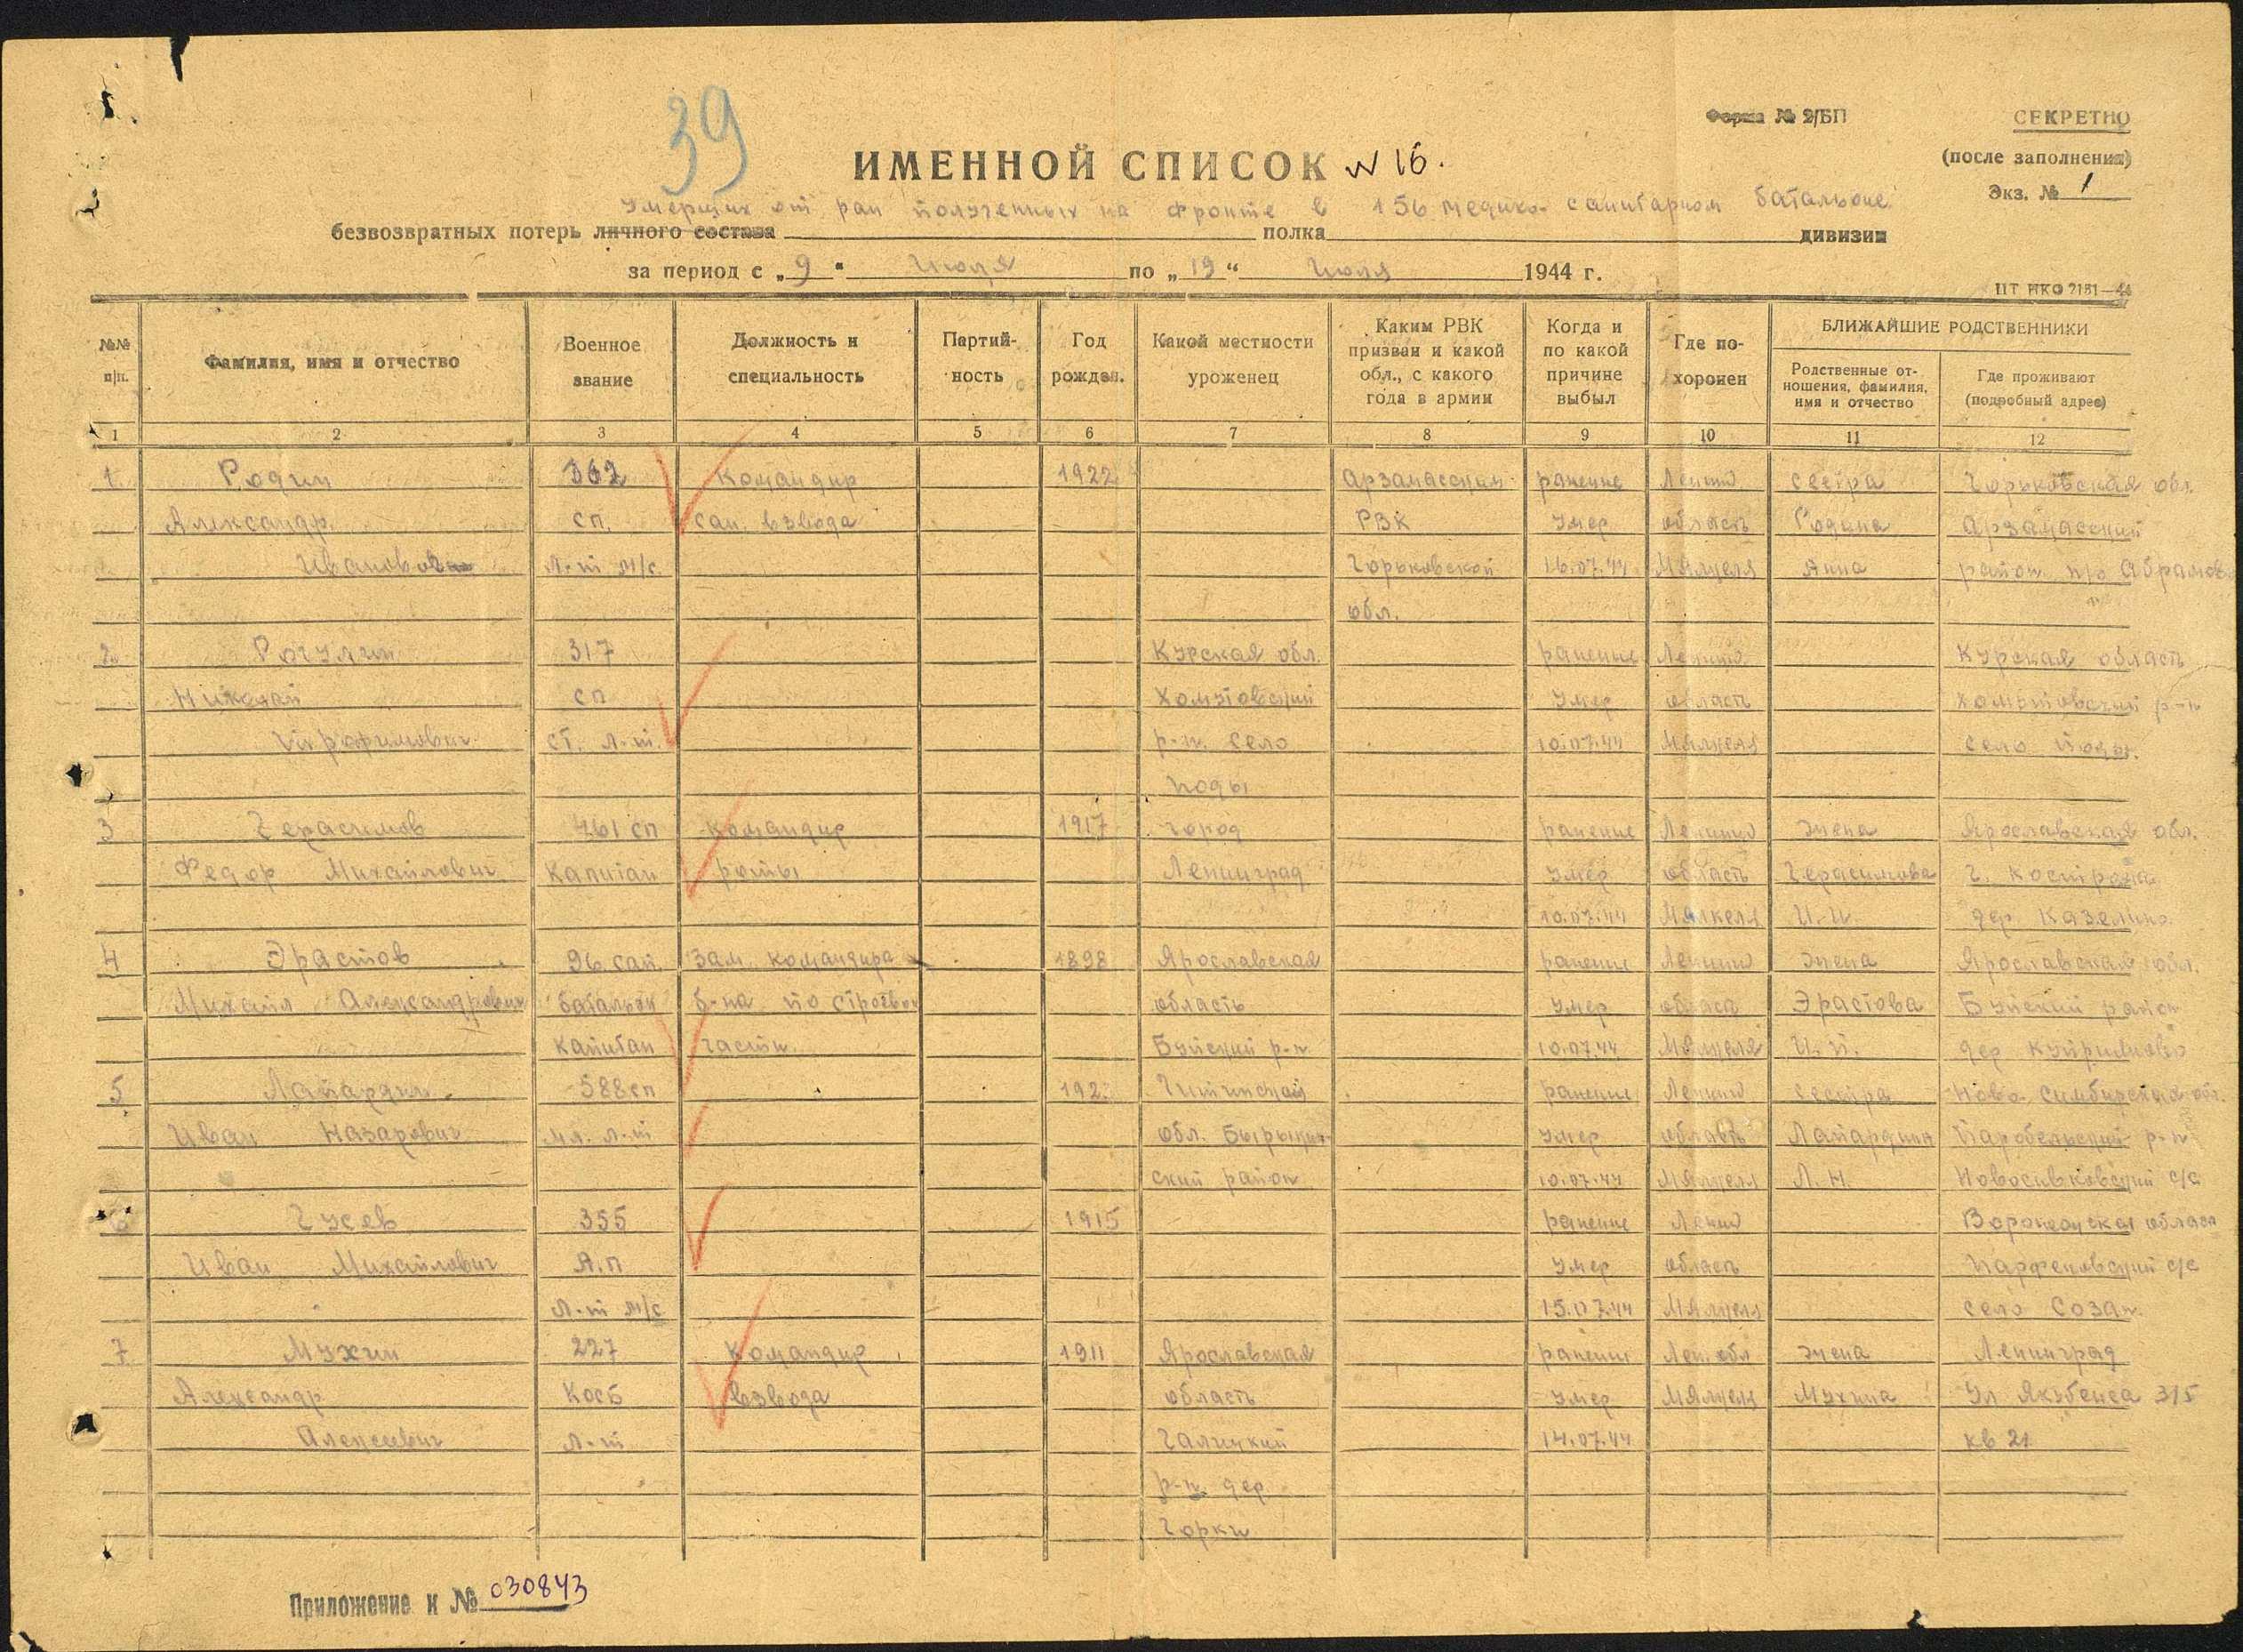 39
Форма № 2/БП
СЕКРЕТНО
(после заполнения)
Экз. № 1
ИМЕННОЙ СПИСОК N 16.
Умерших от ран полученных на фронте в 156 медико-санитарном батальоне
безвозвратных потерь личного состава полка дивизии
за период с „9“ Июля по „19“ Июля 1944 г.
ЦТ НКО 2181—44
№№ п/п. Фамилия, имя и отчество Военное звание Должность и специальность Партийность Год рожден. Какой местности уроженец Каким РВК призван и какой обл., с какого года в армии Когда и по какой причине выбыл Где похоронен БЛИЖАЙШИЕ РОДСТВЕННИКИ
Родственные отношения, фамилия, имя и отчество Где проживают (подробный адрес)
1 2 3 4 5 6 7 8 9 10 11 12
1 Родин Командир 1922 Арзамасским ранение Ленинг сестра Горьковская обл.
Александр сп. сан. взвода РВК умер область Родина Арзамасский
Л-т м/с Горьковской 16.07.44 Мялкеля Анна район п/о
обл.
2. Рогулин 317 Курская обл. ранение Ленинг Курская область
Николай сп Хомутовский умер область Хомутовский р-н
ст. л-т. р-н. село 10.07.44 Мялкеля село Поды.
Поды
3 Герасимов 461 сп командир 1917 город ранение Ленинг жена Ярославская обл.
Федор Михайлович Капитан роты Ленинград умер область Герасимова г. Кострома
10.07.44 Мялкеля дер.
4 Эрастов 96 сап. Зам. командира 1898 Ярославская ранение Ленинг жена Ярославская обл.
Михаил Александрович батальон б-на по строевой область умер Эрастова Буйский район
Капитан части Буйский р-н 10.07.44 Мялкеля дер.
5 Лапардин 588 сп Читинской ранение Ленинг сестра Ново-Симбирская обл.
Иван Назарович мл. л-т обл. умер область Лапардина р-н
ский район 10.07.44 Мялкеля Л.Н. с/с
6 Гусев 355 1915 ранение Ленинг Воронежская
Иван Михайлович А.п умер область с/с
Л-т м/с 15.07.44 Мялкеля село
7 Мухин 227 Командир 1911 Ярославская ранение Лен. обл жена Ленинград
Александр косб взвода область умер Мялкеля Мухина ул 3/5
Алексеевич Л-т Галичкий 14.07.44 кв 21
р-н дер
Горки
Приложение к № 030843